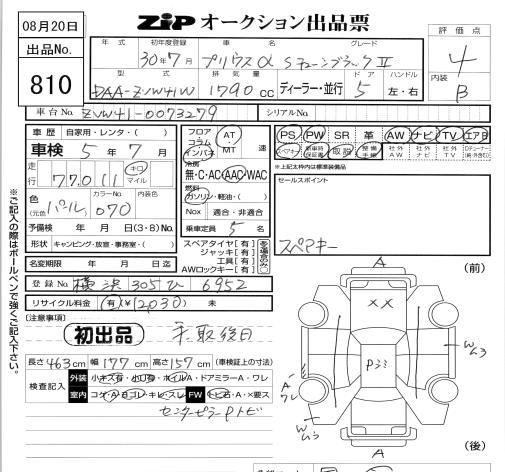 08月20日
ZIP オークション出品票
出品No.
810
評価点
4
内装
B
年式 初年度登録 車名 グレード
30年7月 プリウスα Sチューンブラック II
型式 排気量 ディーラー・並行 ドア ハンドル
DAA-ZVW41W 1790cc 5 左・右
車台No. ZVW41-0073279 シリアルNo.
車歴 自家用・レンタ・( )
車検 5年7月
走行 77,011 キロ マイル
色 (元色 パール) カラーNo. 070
予備検 年 月 日 (3・8) No.
形状 キャンピング・放宣・事務室・( )
名変期限 年 月 日迄
フロア コラム インパネ AT・MT 速
冷房 無・C・AC・AAC・WAC
燃料 ガソリン・軽油・( )
Nox 適合・非適合
乗車定員 5名
スペアタイヤ【有】
ジャッキ【有】
工具【有】
AWロックキー【有】
PS PW SR 革 AW ナビ TV エアB
スペアキー 新車時保証書 取説 整備手帳 社外AW 社外ナビ 社外TV
※上記太枠内は標準装備品
セールスポイント
スペアキー
登録No. 横浜 305 ひ 6952
リサイクル料金 有(¥12,030) 未
【注意事項】
初出品
長さ 463cm 幅 177cm 高さ 157cm (車検証上の寸法)
検査記入 外装 小キズ有・小凹有・ホイルA・ドアミラーA・ワレ
室内 コゲ・A・ヨゴレ・キレ・スレ FW トビ石・A・×要ス
センターピラーPトビ
※ご記入の際はボールペンで強くご記入下さい。
(前)
A
××
Wムラ
Pミミ
A
ワレ
Wムラ
A
(後)